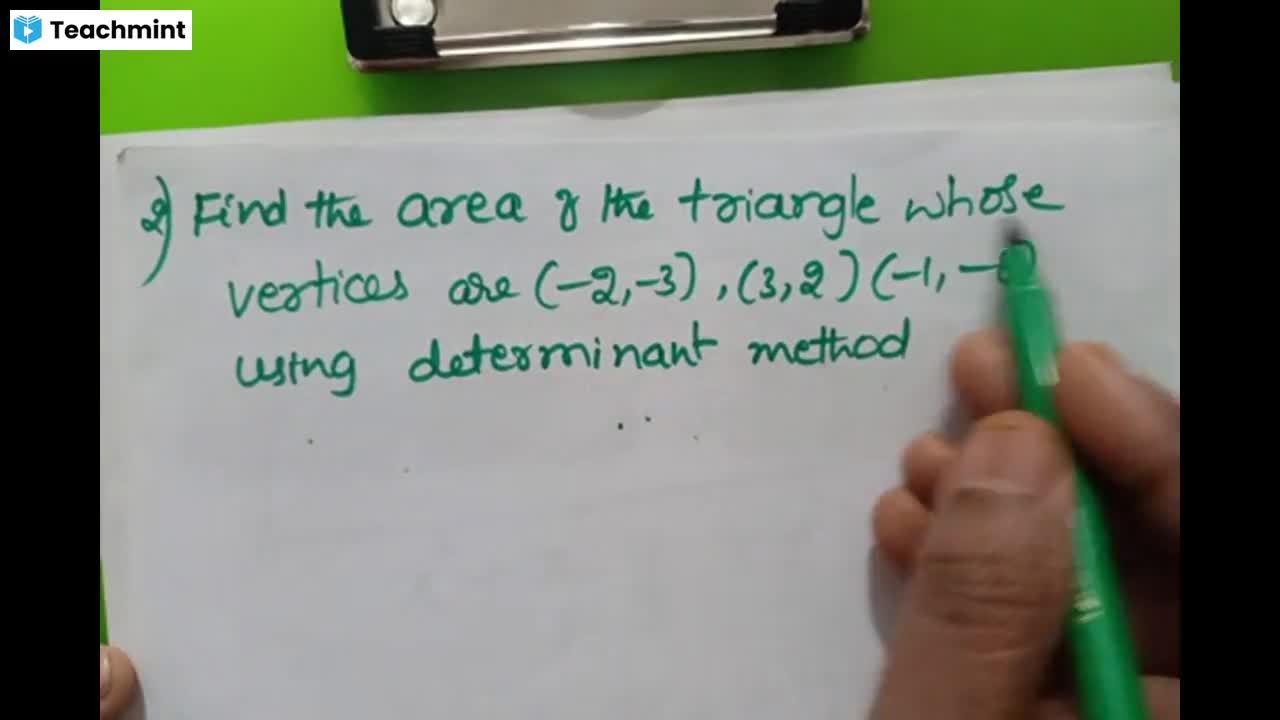 Teachmint
2) Find the area of the triangle whose
vertices are (-2,-3), (3,2) (-1, -
using determinant method